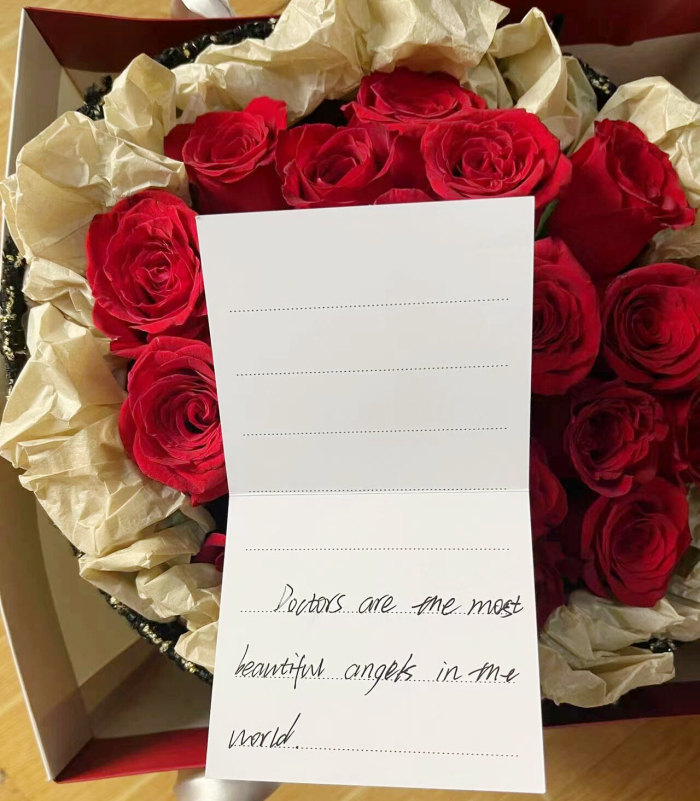 Doctors are the most
beautiful angels in the
world.